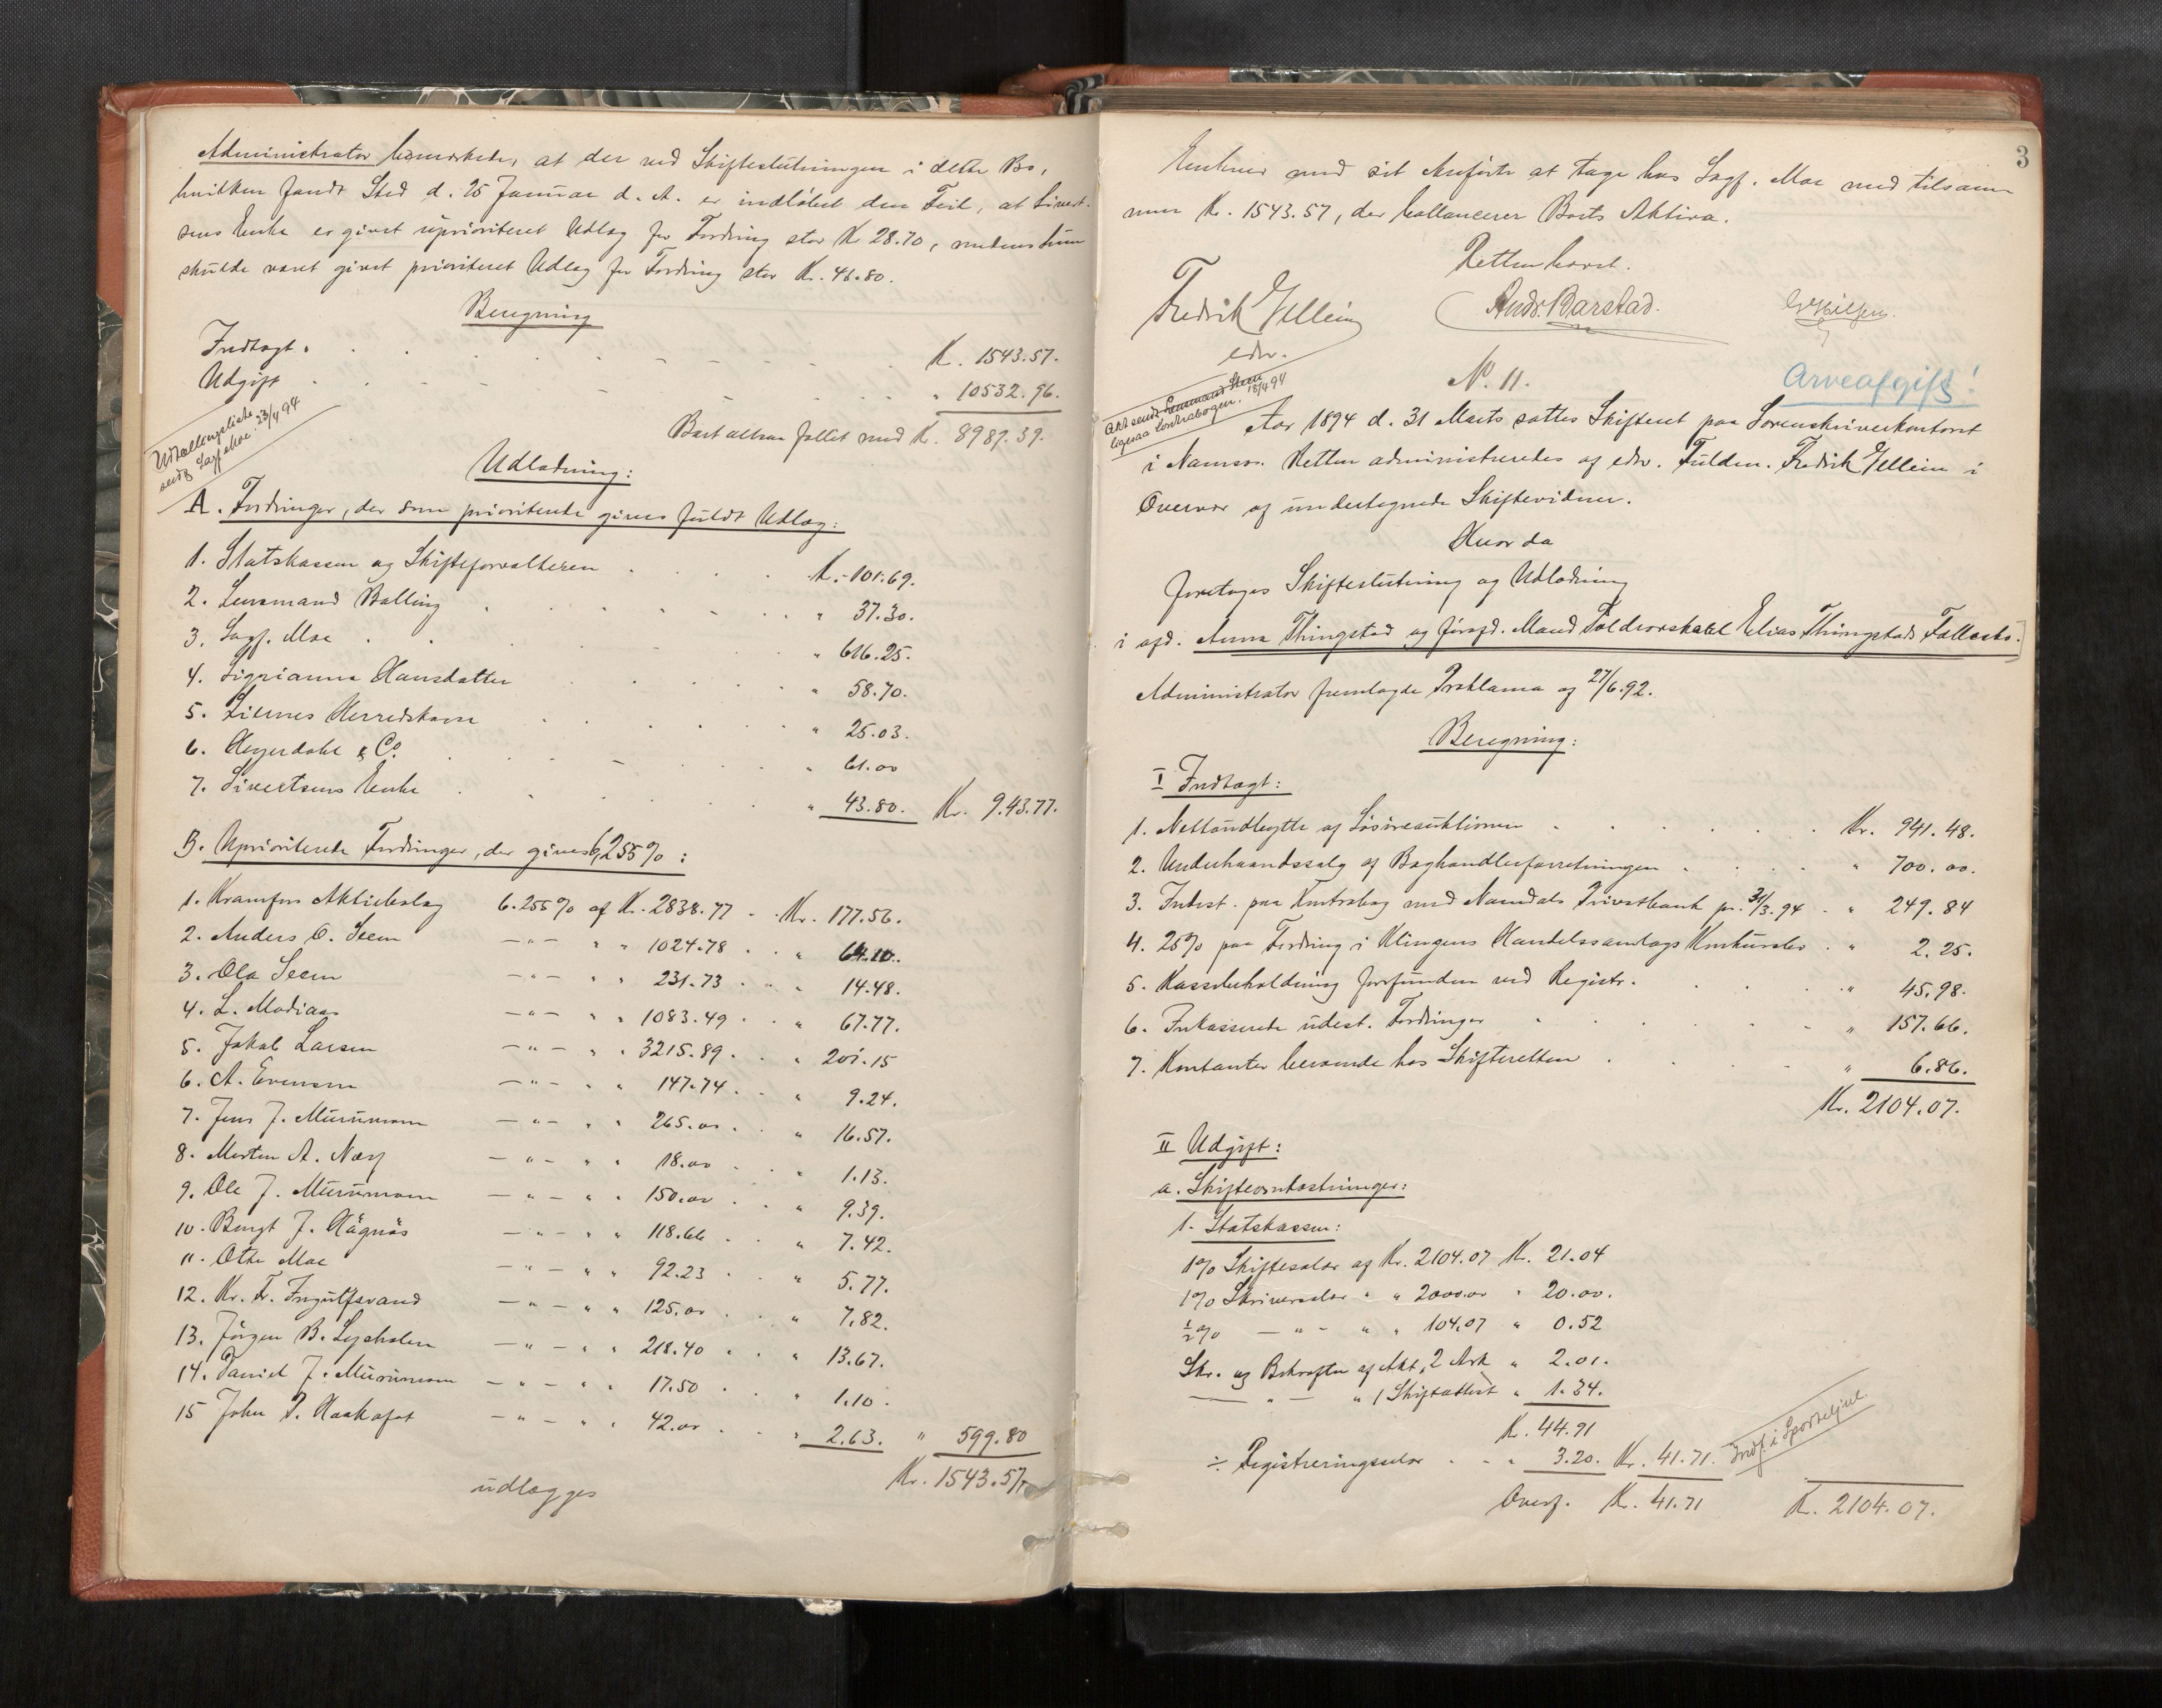 Administrator bemærkede, at der ved Skifteslutningen i dette Bo,
hvilken fandt Sted d. 25 Januar d. A. er indløbet den Feil, at Sivert-
sens Enke er givet uprioriteret Udlæg for Fordring stor Kr 28.70, medens hun
skulde været givet prioriteret Udlæg for Fordring stor Kr. 43.80.
Beregning
Indtægt . . . K. 1543.57.
Udgift . . . " 10532.96.
Boet altsaa fallit med K. 8989.39.
Udtællingsliste
sendt Sagf. Moe. 23/4 94
Udlodning:
A. Fordringer, der som prioriterte gives fuldt Udlæg:
1. Statskassen og Skifteforvalteren . . . K. 101.69.
2. Lensmand Balling . . . " 37.30.
3. Sagf. Moe . . . " 616.25.
4. Sigrianna Hansdatter . . . " 58.70.
5. Liernes Herredskasse . . . " 25.03.
6. Heyerdahl & Co. . . . " 61.00
7. Sivertsens Enke . . . " 43.80. Kr. 943.77.
B. Uprioriterte Fordringer, der gives 6,255%:
1. Kramfors Aktiebolag 6.255% af K. 2838.77 . Kr. 177.56.
2. Anders O. Seem — " — " " 1024.78 . . " 64.10.
3. Ola Seem — " — " " 231.73 . " 14.48.
4. L. Modiaas — " — " " 1083.49 . " 67.77.
5. Jakob Larsen — " — " " 3215.89 . " 201.15
6. A. Evensen — " — " " 147.74 . " 9.24.
7. Jens J. Murumoen — " — " " 265.00 . " 16.57.
8. Morten A. Næss — " — " " 18.00 . " 1.13.
9. Ole J. Murumoen — " — " " 150.00 . " 9.39.
10. Bengt J. Hägnäs — " — " " 118.66 . " 7.42.
11. Othe Moe — " — " " 92.23 . " 5.77.
12. Kr. Fr. Ingulfsvand — " — " " 125.00 . " 7.82.
13. Jörgen B. Lysholm — " — " " 218.40 . " 13.67.
14. Daniel J. Murumoen — " — " " 17.50 . " 1.10.
15 John P. — " — " " 42.00 . " 2.63. " 599.80
Kr. 1543.57
udlægges
3
Enhver med sit Anførte at tage hos Sagf. Moe med tilsam-
men Kr. 1543.57, der ballancerer Boets Aktiva.
Retten hævet.
Fredrik Gellein Andr. Barstad.
edsv.
Akt sendt Lensmand Steen
ligesaa Contrabogen. 18/4 94
No. 11. Arveafgift!
Aar 1894 d. 31 Marts sattes Skifteret paa Sorenskriverkontoret
i Namsos. Retten administreredes af edsv. Fuldm. Fredrik Gellein i
Overvær af undertegnede Skiftevidner.
Hvor da
foretoges Skifteslutning og Udlodning
i afd. Anna Thingstad og foraf d. Mand Toldrorskarl Elias Thingstads Fællesbo.
Administrator fremlagde Proklama af 27/6.92.
Beregning:
I Indtægt:
1. Nettoudbytte af Løsøreauktionen . . . Kr. 941.48.
2. Underhaandssalg af Boghandlerforretningen . . . " 700.00.
3. Indest. paa Kontrabog med Namdals Privatbank pr. 31/3.94 . " 249.84
4. 25% paa Fordring i Klingens Handelssamlags Konkursbo . " 2.25.
5. Kassebeholdning forefunden ved Registr. . . . " 45.98.
6. Inkasserede udest. Fordringer . . . " 157.66.
7. Kontanter beroende hos Skifteretten . . . " 6.86.
Kr. 2104.07.
II Udgift:
a. Skifteomkostninger:
1. Statskassen:
1% Skiftesalær af Kr. 2104.07 Kr. 21.04
1% Skriversalær " " 2000.00 " 20.00.
½% — " — " " 104.07 " 0.52
Skr. og Bekræften af Akt, 2 Ark " 2.01.
— " — " 1 Skifteattest " 1.34.
K. 44.91
÷ Registreringssalær . . " 3.20. Kr. 41.71. Indf. i Sportelject
Overf. K. 41.71 K. 2104.07.